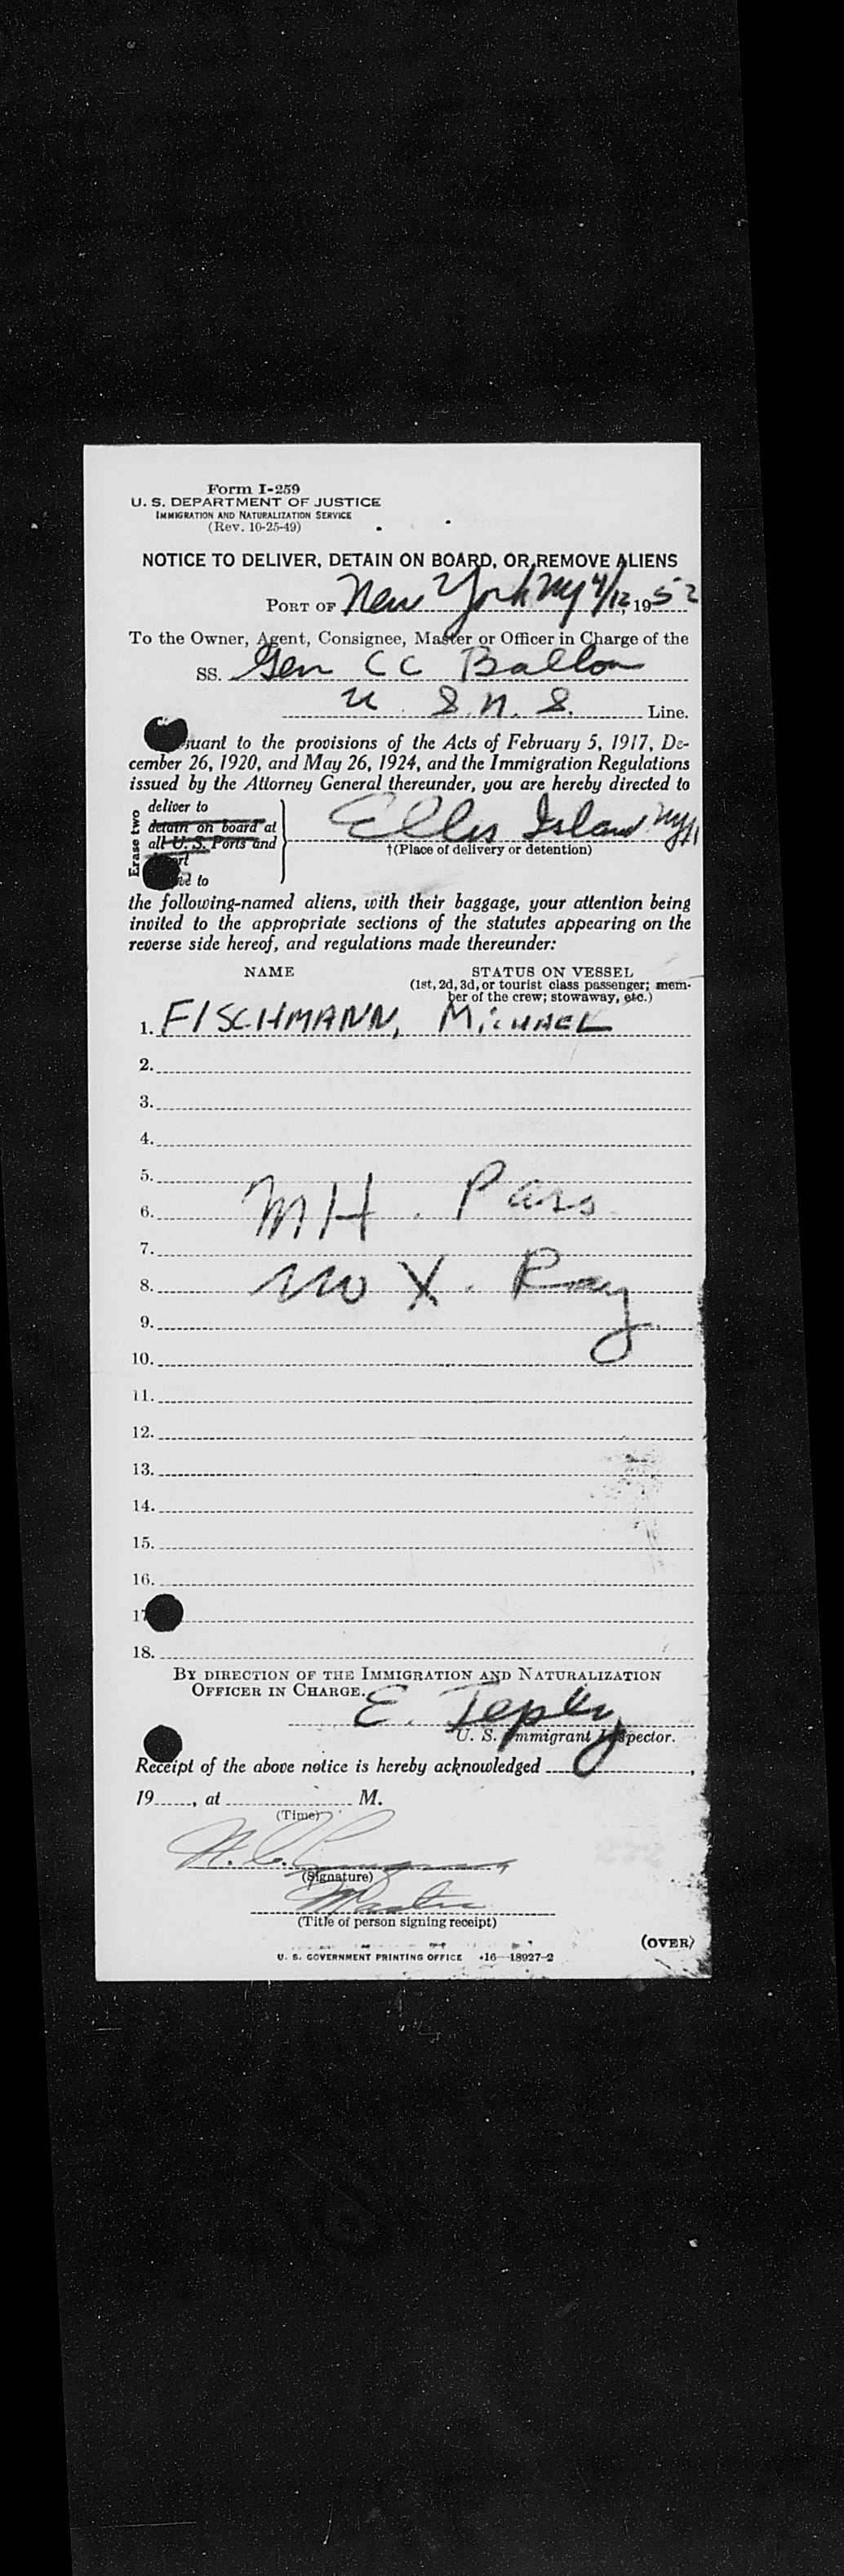 Form I-259
U. S. DEPARTMENT OF JUSTICE
IMMIGRATION AND NATURALIZATION SERVICE
(Rev. 10-25-49)
NOTICE TO DELIVER, DETAIN ON BOARD, OR REMOVE ALIENS
PORT OF New York NY 4/12, 1952
To the Owner, Agent, Consignee, Master or Officer in Charge of the
SS. Gen CC Ballou
U. S. N. S. Line.
suant to the provisions of the Acts of February 5, 1917, De-
cember 26, 1920, and May 26, 1924, and the Immigration Regulations
issued by the Attorney General thereunder, you are hereby directed to
Erase two
deliver to
detain on board at
all U. S. Ports and
Ellis Island NY
†(Place of delivery or detention)
to
the following-named aliens, with their baggage, your attention being
invited to the appropriate sections of the statutes appearing on the
reverse side hereof, and regulations made thereunder:
NAME STATUS ON VESSEL
(1st, 2d, 3d, or tourist class passenger; mem-
ber of the crew; stowaway, etc.)
1. FISCHMANN, MICHAEL
2.
3.
4.
5.
6. MH. Pars
7.
8. no X. Ray
9.
10.
11.
12.
13.
14.
15.
16.
17
18.
BY DIRECTION OF THE IMMIGRATION AND NATURALIZATION
OFFICER IN CHARGE.
E. Tepley
U. S. Immigrant Inspector.
Receipt of the above notice is hereby acknowledged ,
19 , at M.
(Time)
(Signature)
Master
(Title of person signing receipt)
(OVER)
U. S. GOVERNMENT PRINTING OFFICE 16—18927-2